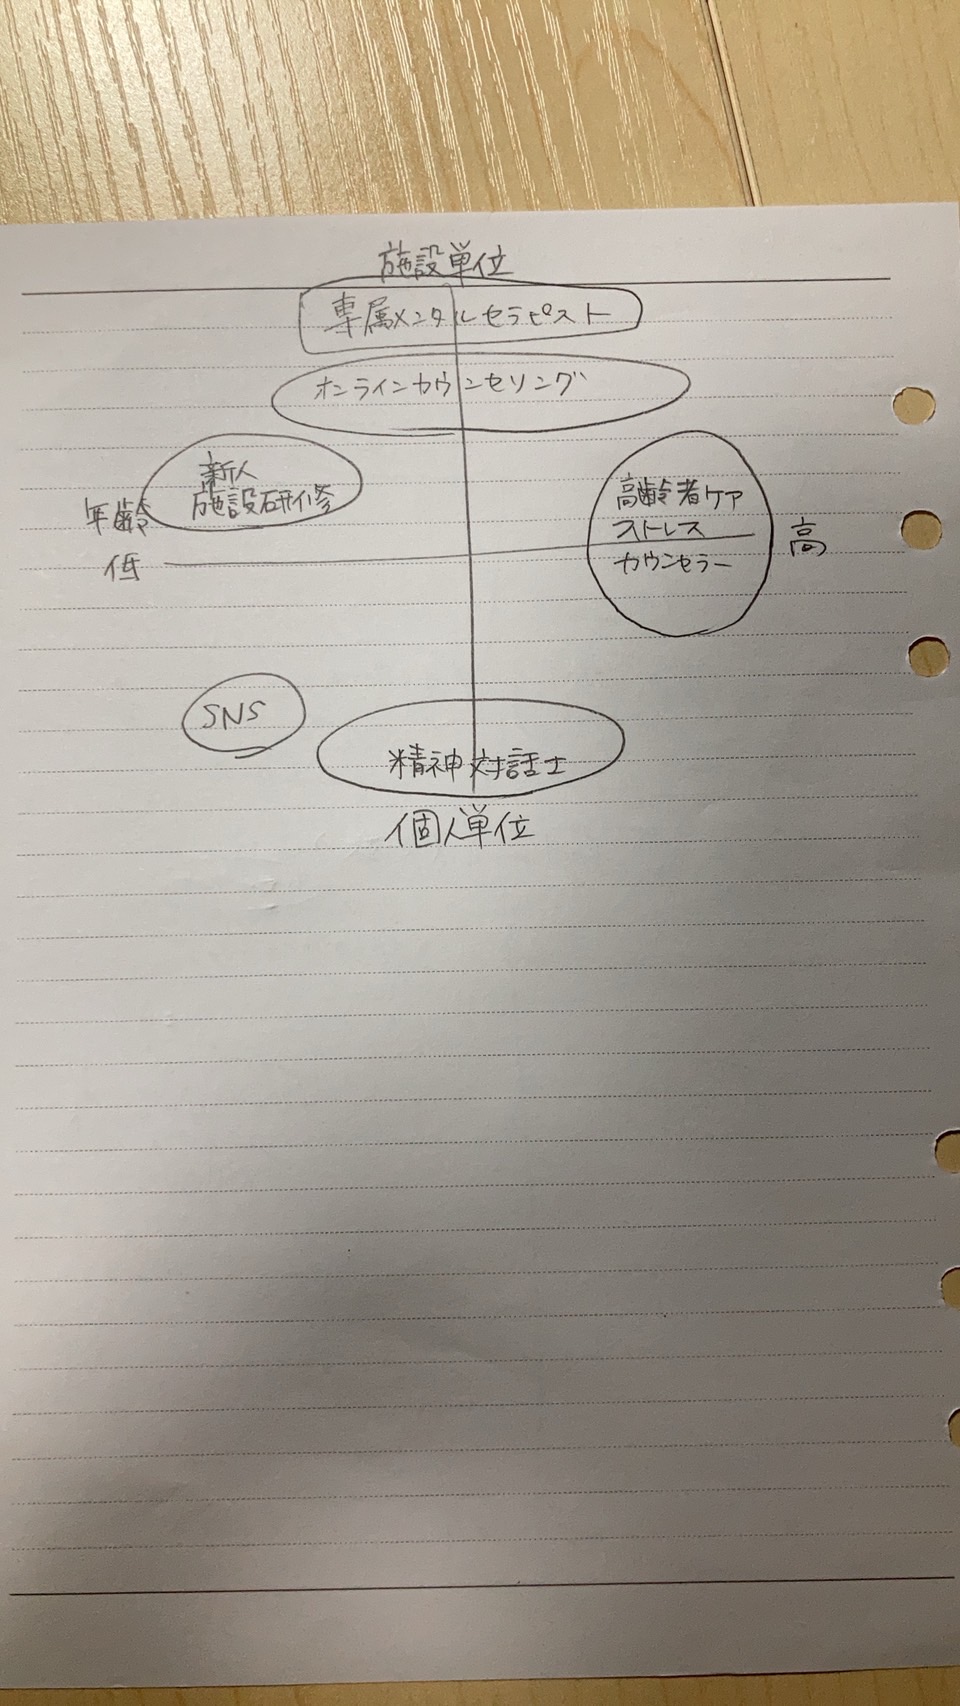 施設単位
専属メンタルセラピスト
オンラインカウンセリング
新人
施設研修
高齢者ケア
ストレス
カウンセラー
年齢
低
高
SNS
精神対話士
個人単位